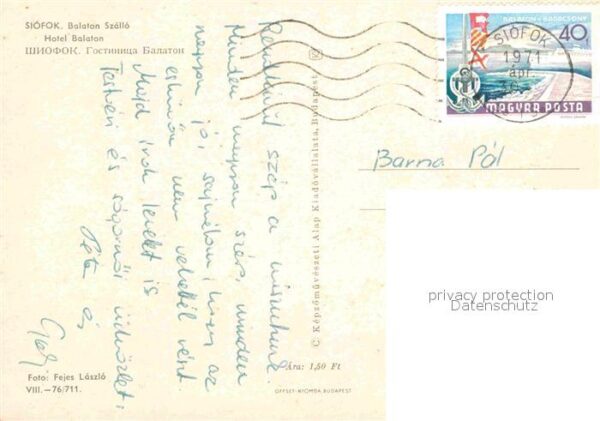 SIÓFOK, Balaton Szálló
Hotel Balaton
ШИОФОК, Гостиница Балатон
BALATON - BADACSONY
40
MAGYAR POSTA
SIÓFOK
1971
ápr.
Barna Pál
Rendkívül szép a
Minden nagyon szép, minden
nagyon jó, sajnálom, hogy az
nem vehettél részt.
Majd írok levelet is
Testvéri és üdvözlet:
és
C. Képzőművészeti Alap Kiadóvállalata, Budapest
Ára: 1,50 Ft
OFFSET-NYOMDA BUDAPEST
Foto: Fejes László
VIII.—76/711.
privacy protection
Datenschutz